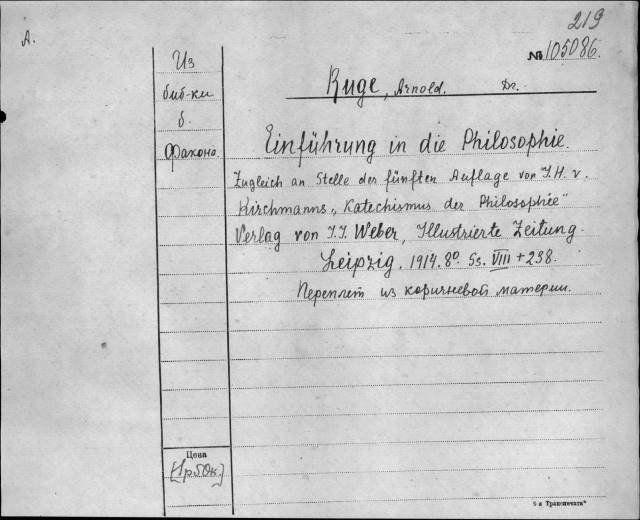 219
A.
№ 105086.
Из
биб-ки
б.
Фахона.
Ruge, Arnold. Dr.
Einführung in die Philosophie.
Zugleich an Stelle der fünften Auflage von J.H. v.
Kirchmanns „Katechismus der Philosophie"
Verlag von J.J. Weber, Illustrierte Zeitung.
Leipzig. 1914. 8º. Ss. VIII + 238.
Переплет из коричневой материи.
Цена
[1р50к.]
5-я Транспечать"